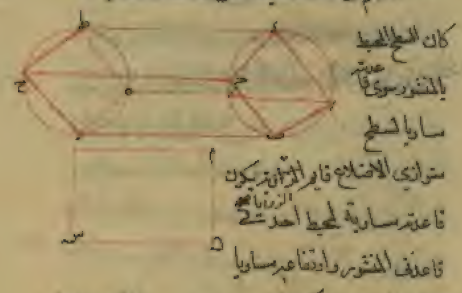 كان السطح المحيط
بالمنشور سوى قاعدتيه
مساويا لسطح
متوازي الاضلاع قايم الزوايا تكون
قاعدته مساوية لمحيط احدى
قاعدتي المنشور وارتفاعه مساويا